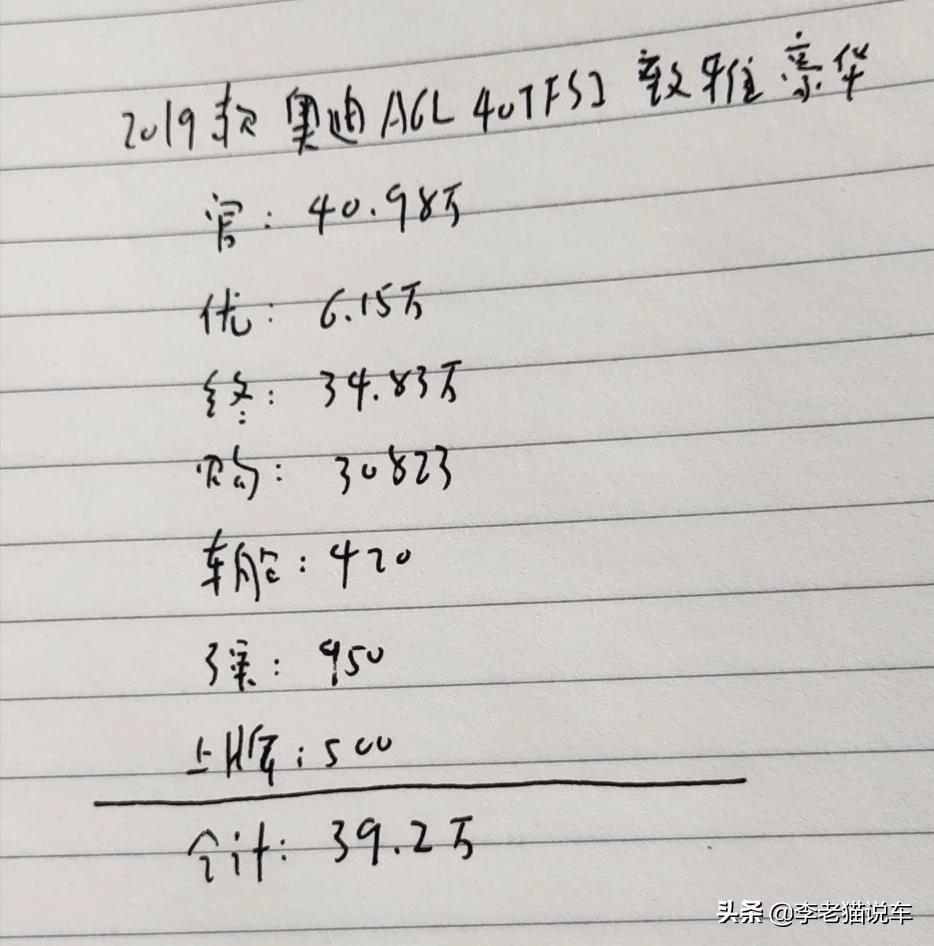 2019款 奥迪A6L 40TFSI 致雅 豪华
官: 40.98万
优: 6.15万
终: 34.83万
购: 30823
车船: 420
强: 950
上牌: 500
合计: 39.2万
头条 @李老猫说车